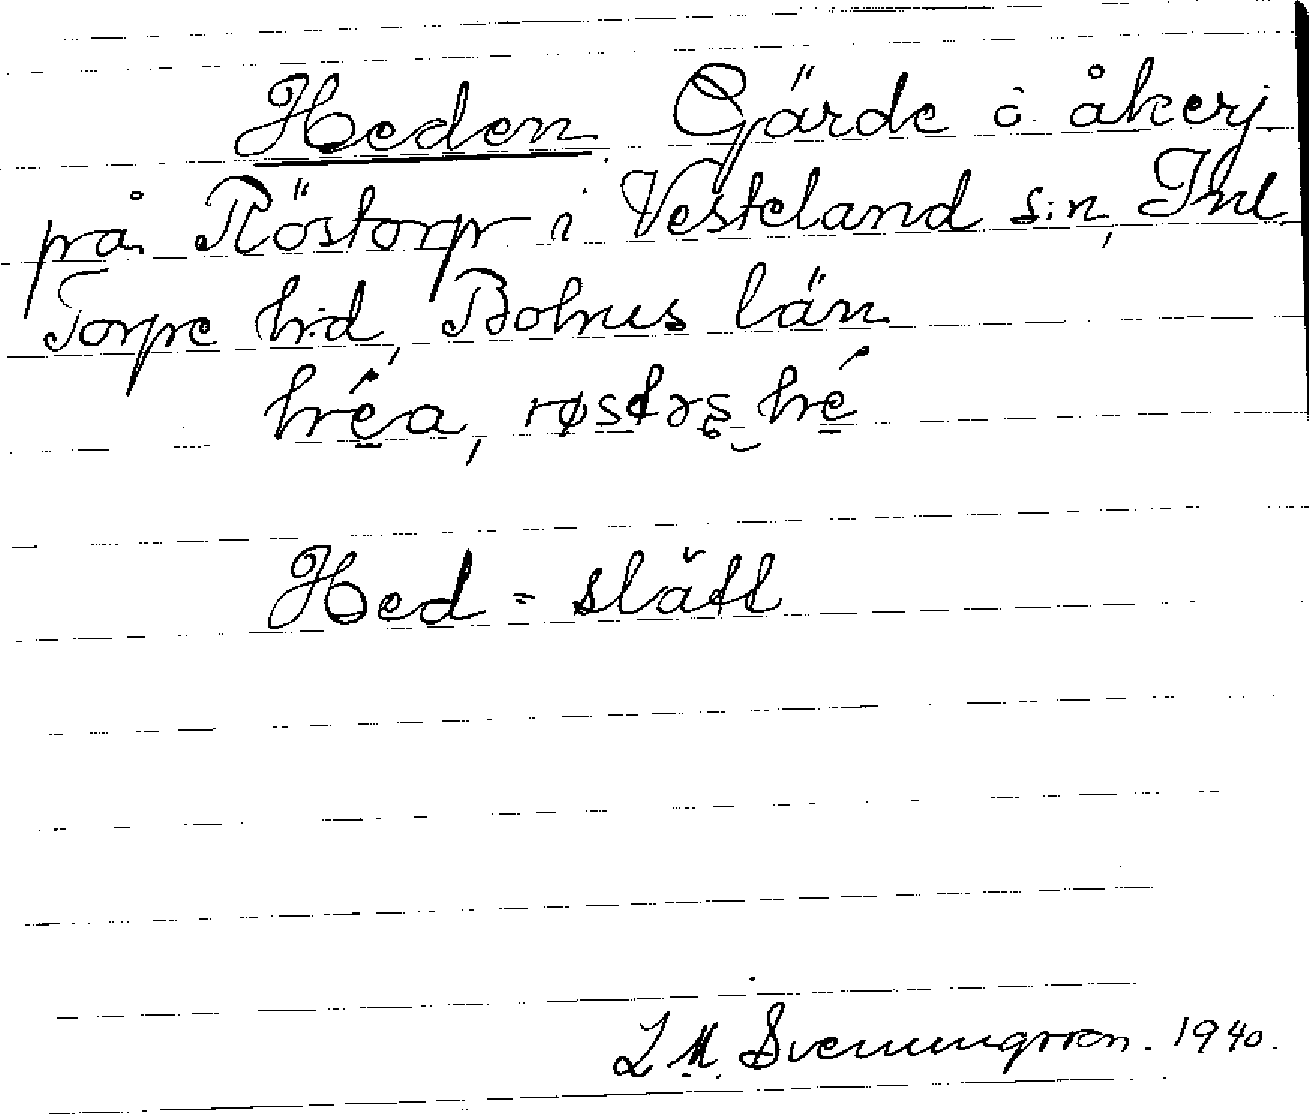 Heden. Gärde o åkerj
på Röstorp i Vesteland s:n, Inl
Torpe h:d, Bohus län
hé̱a, røstərs‿hé̱
Hed = slätt
L M. Svenungsson. 1940.